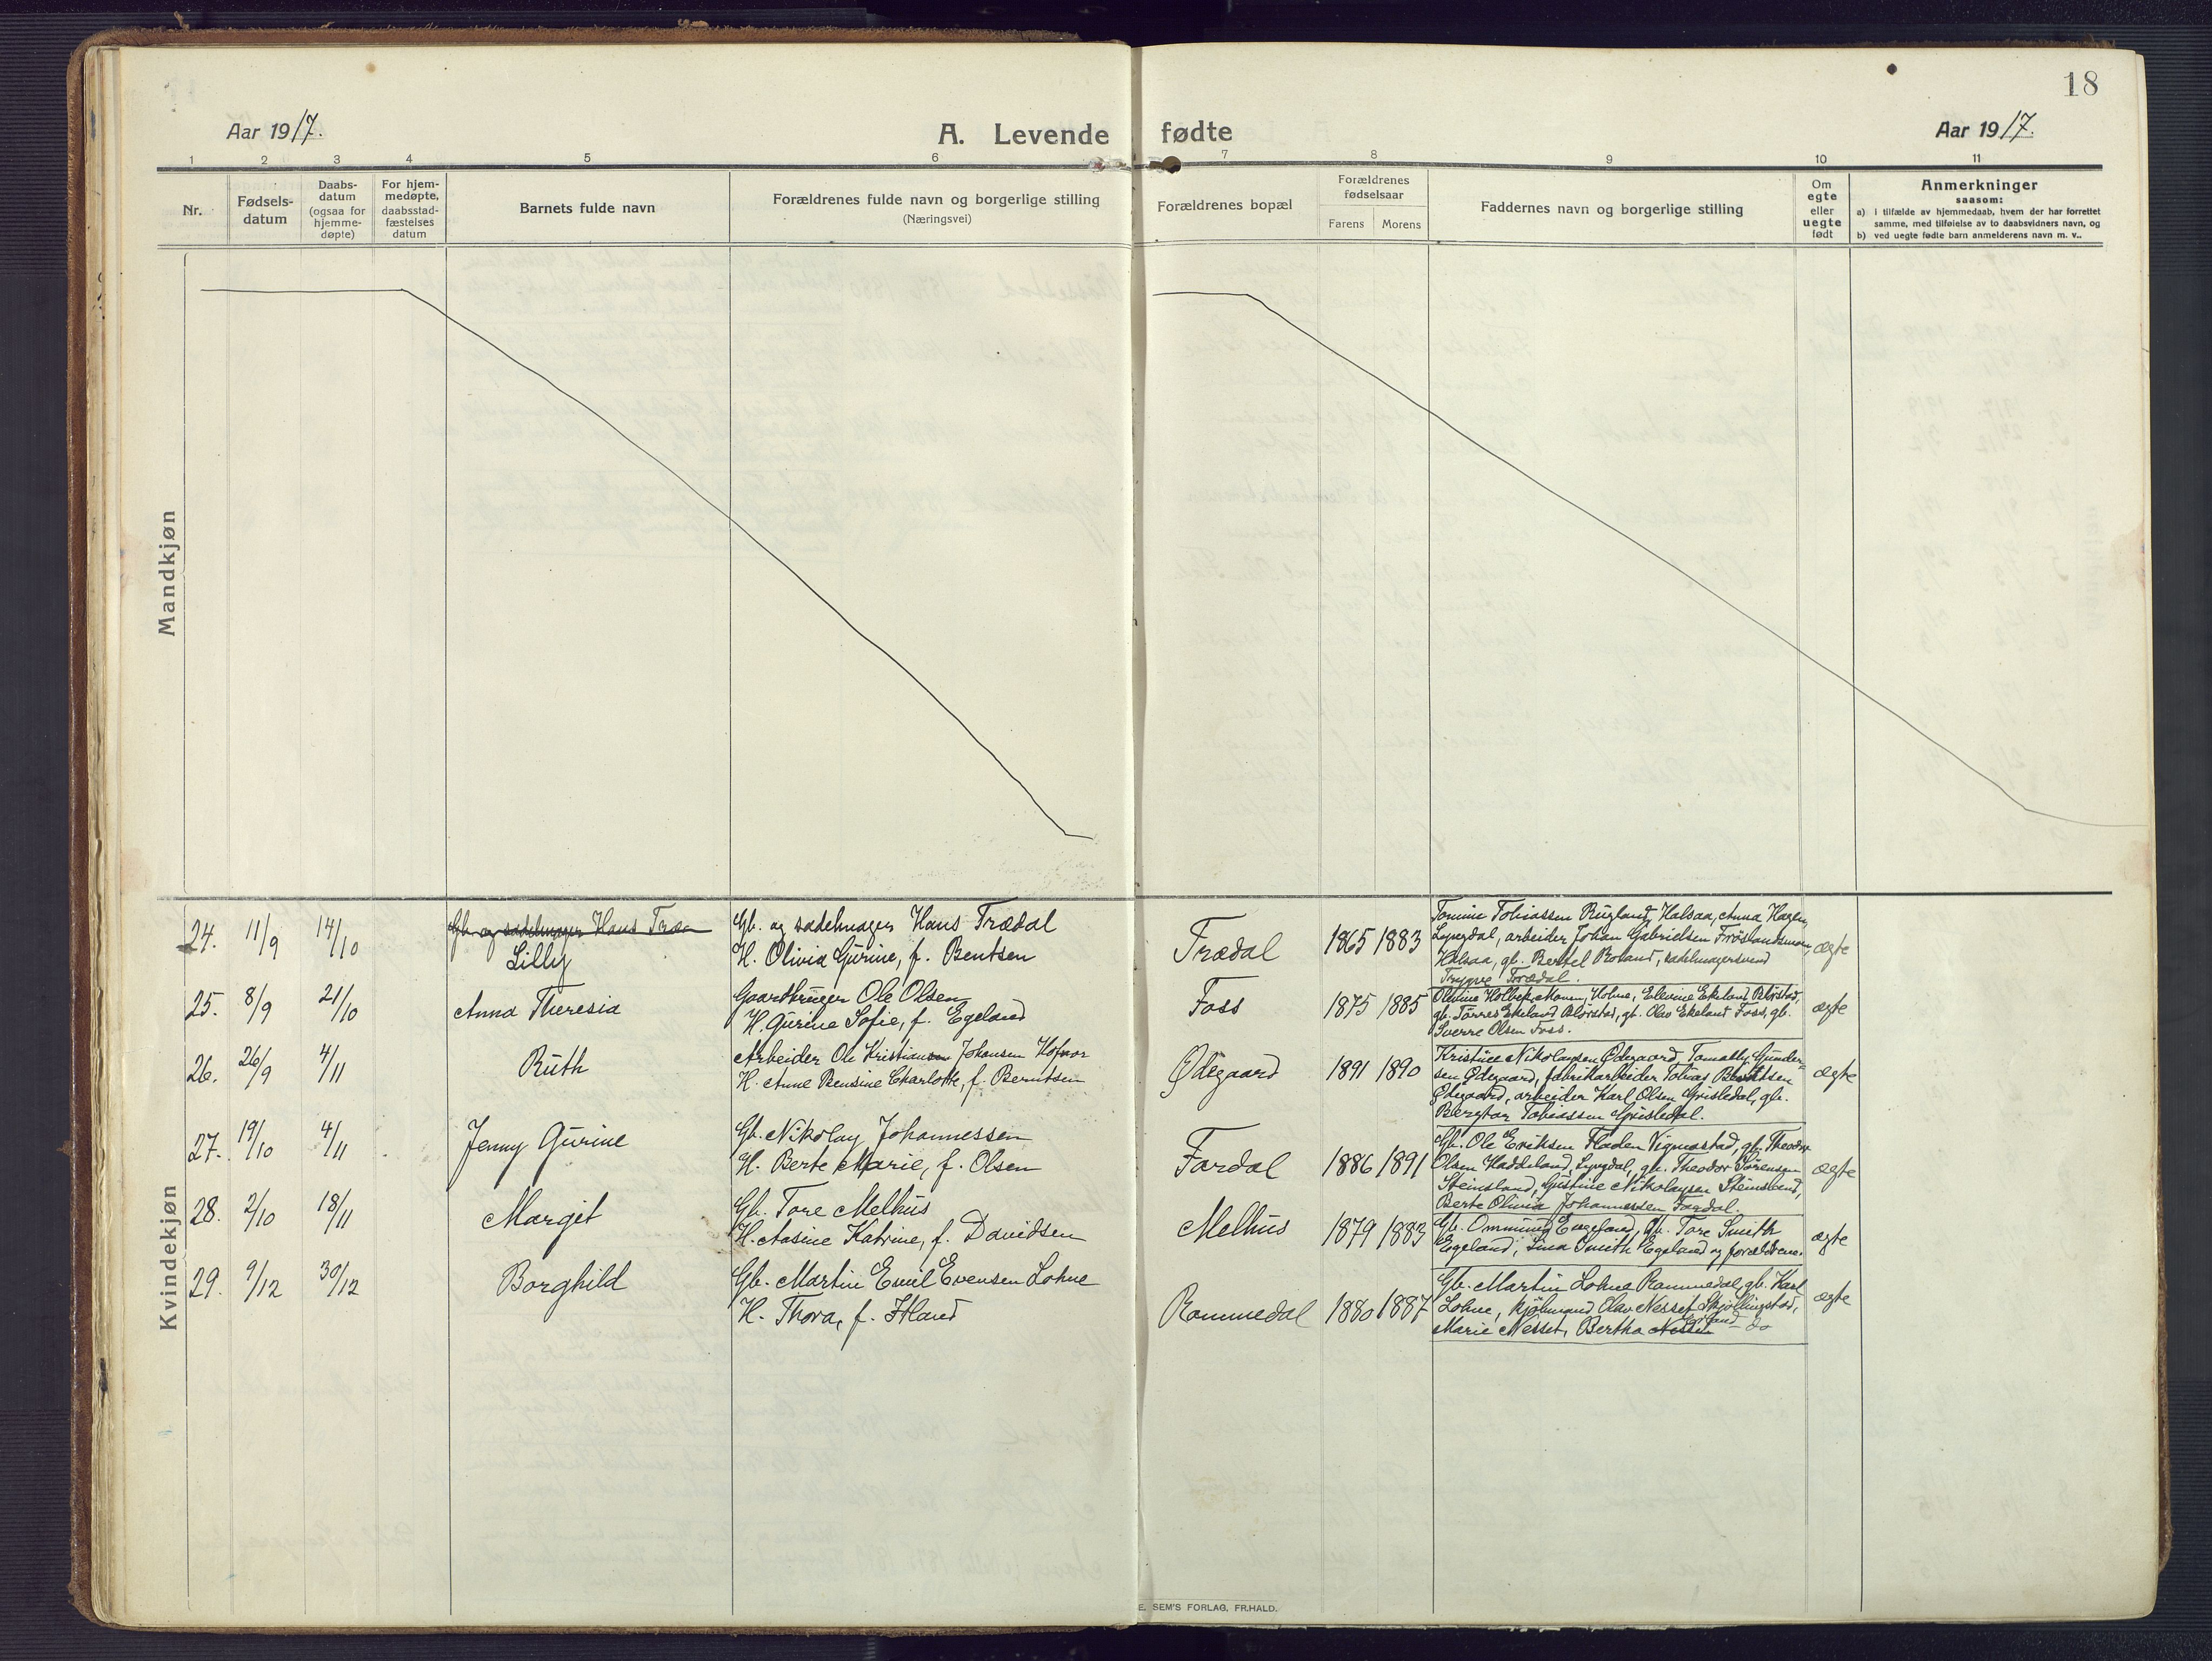 18
Aar 1917.
A. Levende fødte
Aar 1917.
1 2 3 4 5 6 7 8 9 10 11
Nr.
Fødsels-
datum
Daabs-
datum
(ogsaa for
hjemme-
døpte)
For hjem-
medøpte,
daabsstad-
fæstelses
datum
Barnets fulde navn
Forældrenes fulde navn og borgerlige stilling
(Næringsvei)
Forældrenes bopæl
Forældrenes
fødselsaar
Farens Morens
Faddernes navn og borgerlige stilling
Om
egte
eller
uegte
født
Anmerkninger
saasom:
a) i tilfælde av hjemmedaab, hvem der har forrettet
samme, med tilføielse av to daabsvidners navn, og
b) ved uegte fødte barn anmelderens navn m. v..
Mandkjøn
Kvindekjøn
24. 11/9 14/10
Gb. og sadelmager Hans Træ
Lilly
Gb. og sadelmager Hans Trædal
H. Olivia Gurine, f. Bentsen
Trædal 1865 1883
Tomine Tobiassen Rugland, Halsaa, Anna Hagen,
Lyngdal, arbeider Johan Gabrielsen Frøslandsmoen,
Halsaa, gb. Bertel Roland, sadelmagersvend
Trygve Trædal.
ægte
25. 8/9 21/10
Anna Theresia
Gaardbruger Ole Olsen
H. Gurine Sofie, f. Egeland
Foss 1875 1885
Olivine Holbek Monen, Holme, Elevine Ekeland Bdørstad,
gb. Tørres Ekeland Bdørstad, gb. Olav Ekeland Foss, gb.
Sverre Olsen Foss.
ægte
26. 26/9 4/11
Ruth
Arbeider Ole Kristiansen Johansen
H. Anne Bensine Charlotte, f. Berntsen
Ødegaard 1891 1890
Kristine Nikolaysen Ødegaard, Gunder-
sen Ødegaard, fabrikarbeider Tobias Berntsen
Ødegaard, arbeider Karl Olsen Grisledal, gb.
Bergtor Tobiassen Grisledal.
ægte
27. 19/10 4/11
Jenny Gurine
Gb. Nikolay Johannessen
H. Berte Marie, f. Olsen
Fardal 1886 1891
Gb. Ole Eriksen Fladen Vigmostad, gb. Theodor
Olsen Haddeland, Lyngdal, gb. Theodor Sørensen
Steinsland, Gustine Nikolaysen Steinsland,
Berte Olivia Johannessen Fardal.
ægte
28. 2/10 18/11
Margit
Gb. Tore Melhus
H. Aasine Katrine, f. Davidsen
Melhus 1879 1883
Gb. Ommund Egeland, gb. Tore Smith
Egeland, Lina Smith Egeland og forældrene.
ægte
29. 9/12 30/12
Borghild
Gb. Martin Emil Evensen Lohne
H. Thora, f. Høland
Rommedal 1880 1887
Gb. Martin Lohne Rommedal, gb. Karl
Lohne, kjøbmand Olav Nesset Skjollingstad,
Marie Nesset, Bertha Nesset do
ægte
E. SEM'S FORLAG, FR.HALD.